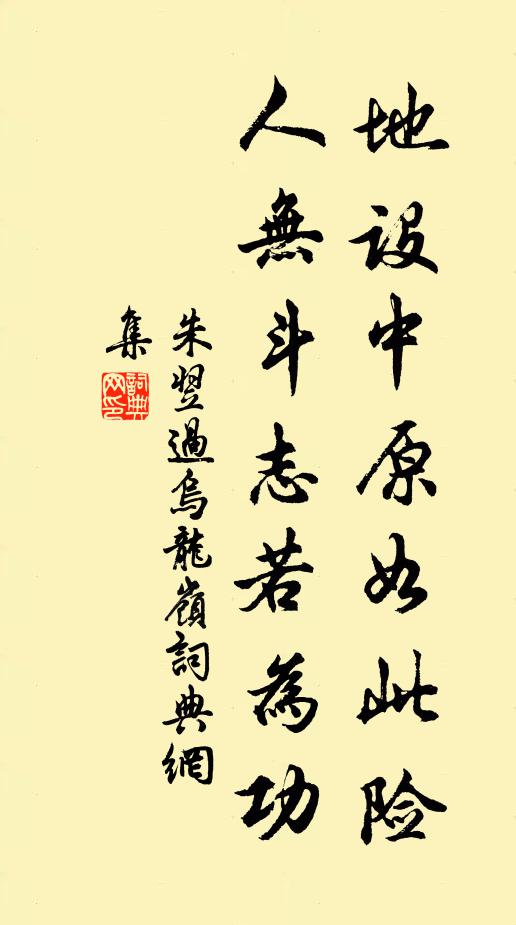 地設中原如此险
人無斗志若為功
朱翌過烏龍嶺詞典網
集
詞典
网印